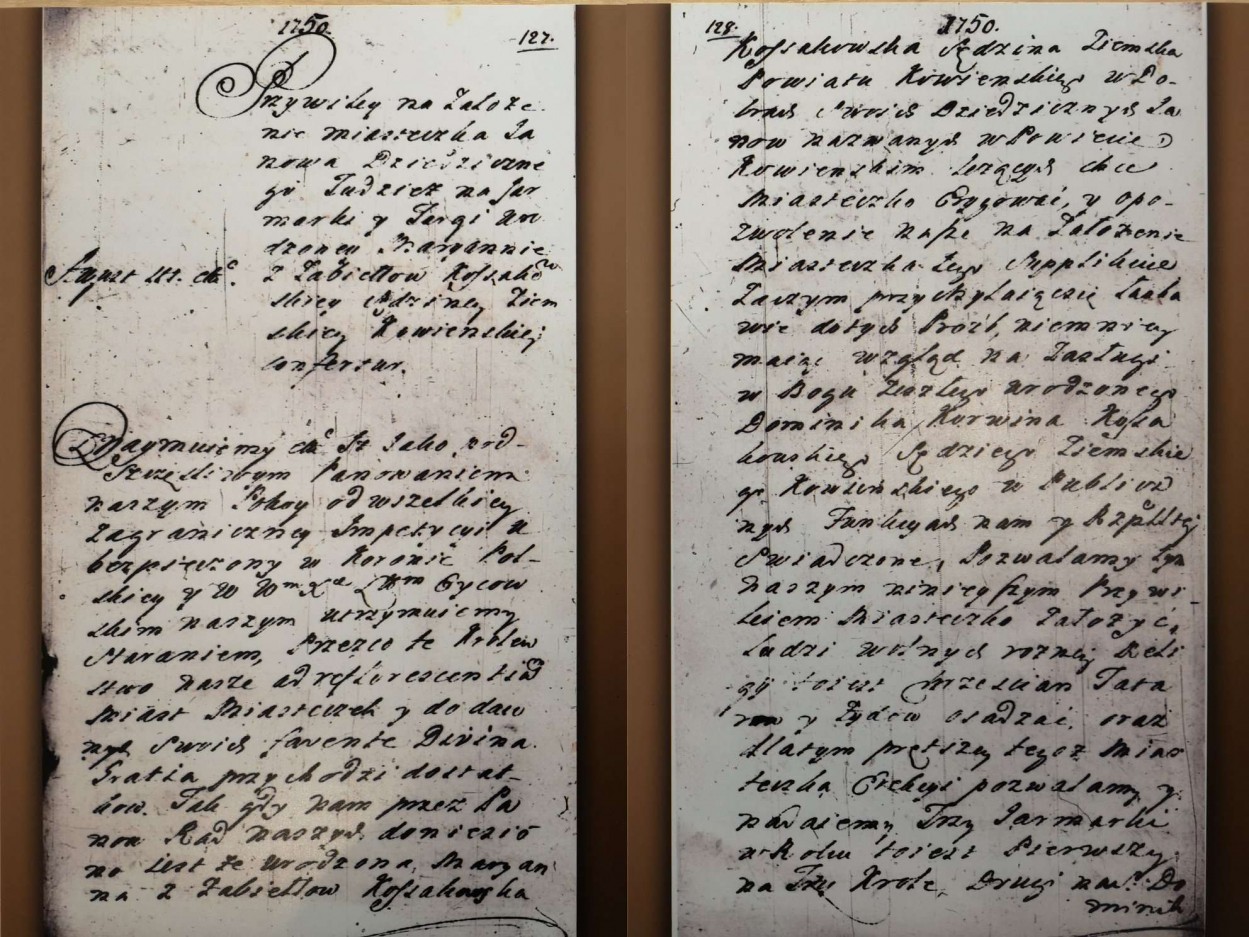 1750.
127.
Przywiley na Załoze
nie miasteczka Ja
nowa Dziedziczne
go Tudziesz na Jar
marki y Targi uro
dzoney Maryannie
z Zabiełłow Kossako
skiey Sędziney Ziem
skiey Kowienskiey
confertur.
August III. etc.
Oznaymuiemy etc. Iż Jako pod
Szczęśliwym Panowaniem
naszym Pokoy od wszelkiey
Zagraniczney Impetycyi u
bezpieczony w Koronie Pol-
skiey y W Wm X Litm Oycow
skim naszym utrzymuiemy
Staraniem, Przez co te Krolew
stwo nasze ad reflorescentiam
Miast Miasteczek y do daw
nych Swoich favente Divina
Gratia przychodzi dostat-
kow. Tak gdy nam przez Pa
now Rad naszych doniesio
no iest że urodzona Maryan
na z Zabiełłow Kossakowska
128.
1750.
Kossakowska Sędzina Ziemska
Powiatu Kowienskiego w Do-
brach Swoich Dziedzicznych Ja
now nazwanych w Powiecie
Kowienskim leżących chce
Miasteczko Erygować, y o po-
zwolenie nasze na Załozenie
Miasteczka tego Supplikuie
Zaczym przychylaiąc się łaska
wie do tych Proźb, niemniey
maiąc wzgląd na Zasługi
w Bogu Zeszłego urodzonego
Dominika Korwina Kossa
kowskiego Sędziego Ziemskie
go Kowienskiego w Publicz
nych Funkcyach nam y Rzpltey
Swiadczone, Pozwalamy tym
naszym ninieyszym Przywi
leiem Miasteczko Załozyć,
Ludzi wolnych rozney Reli
gij toiest Chrzescian Tata
row y Zydow osadzać, oraz
dla tym prętszey tegoż Mias
teczka Erekcyi pozwalamy y
nadaiemy Trzy Jarmarki
w Roku toiest Pierwszy
na Trzy Krole, Drugi na S. Do
minik